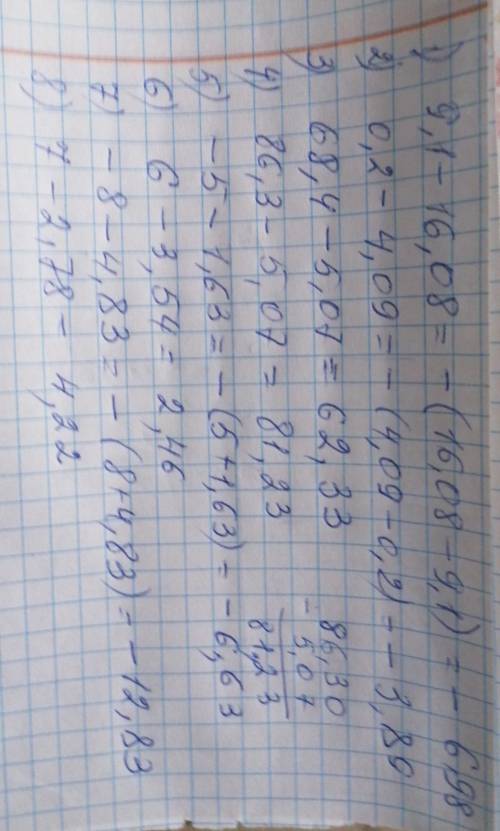 1) 9,1 - 16,08 = - (16,08 - 9,1) = - 6,98
2) 0,2 - 4,09 = - (4,09 - 0,2) = - 3,89
3) 68,4 - 5,07 = 62,33
4) 86,3 - 5,07 = 81,23
86,30
- 5,07
81,23
5) - 5 - 1,63 = - (5 + 1,63) = - 6,63
6) 6 - 3,54 = 2,46
7) - 8 - 4,83 = - (8 + 4,83) = - 12,83
8) 7 - 2,78 - 4,22